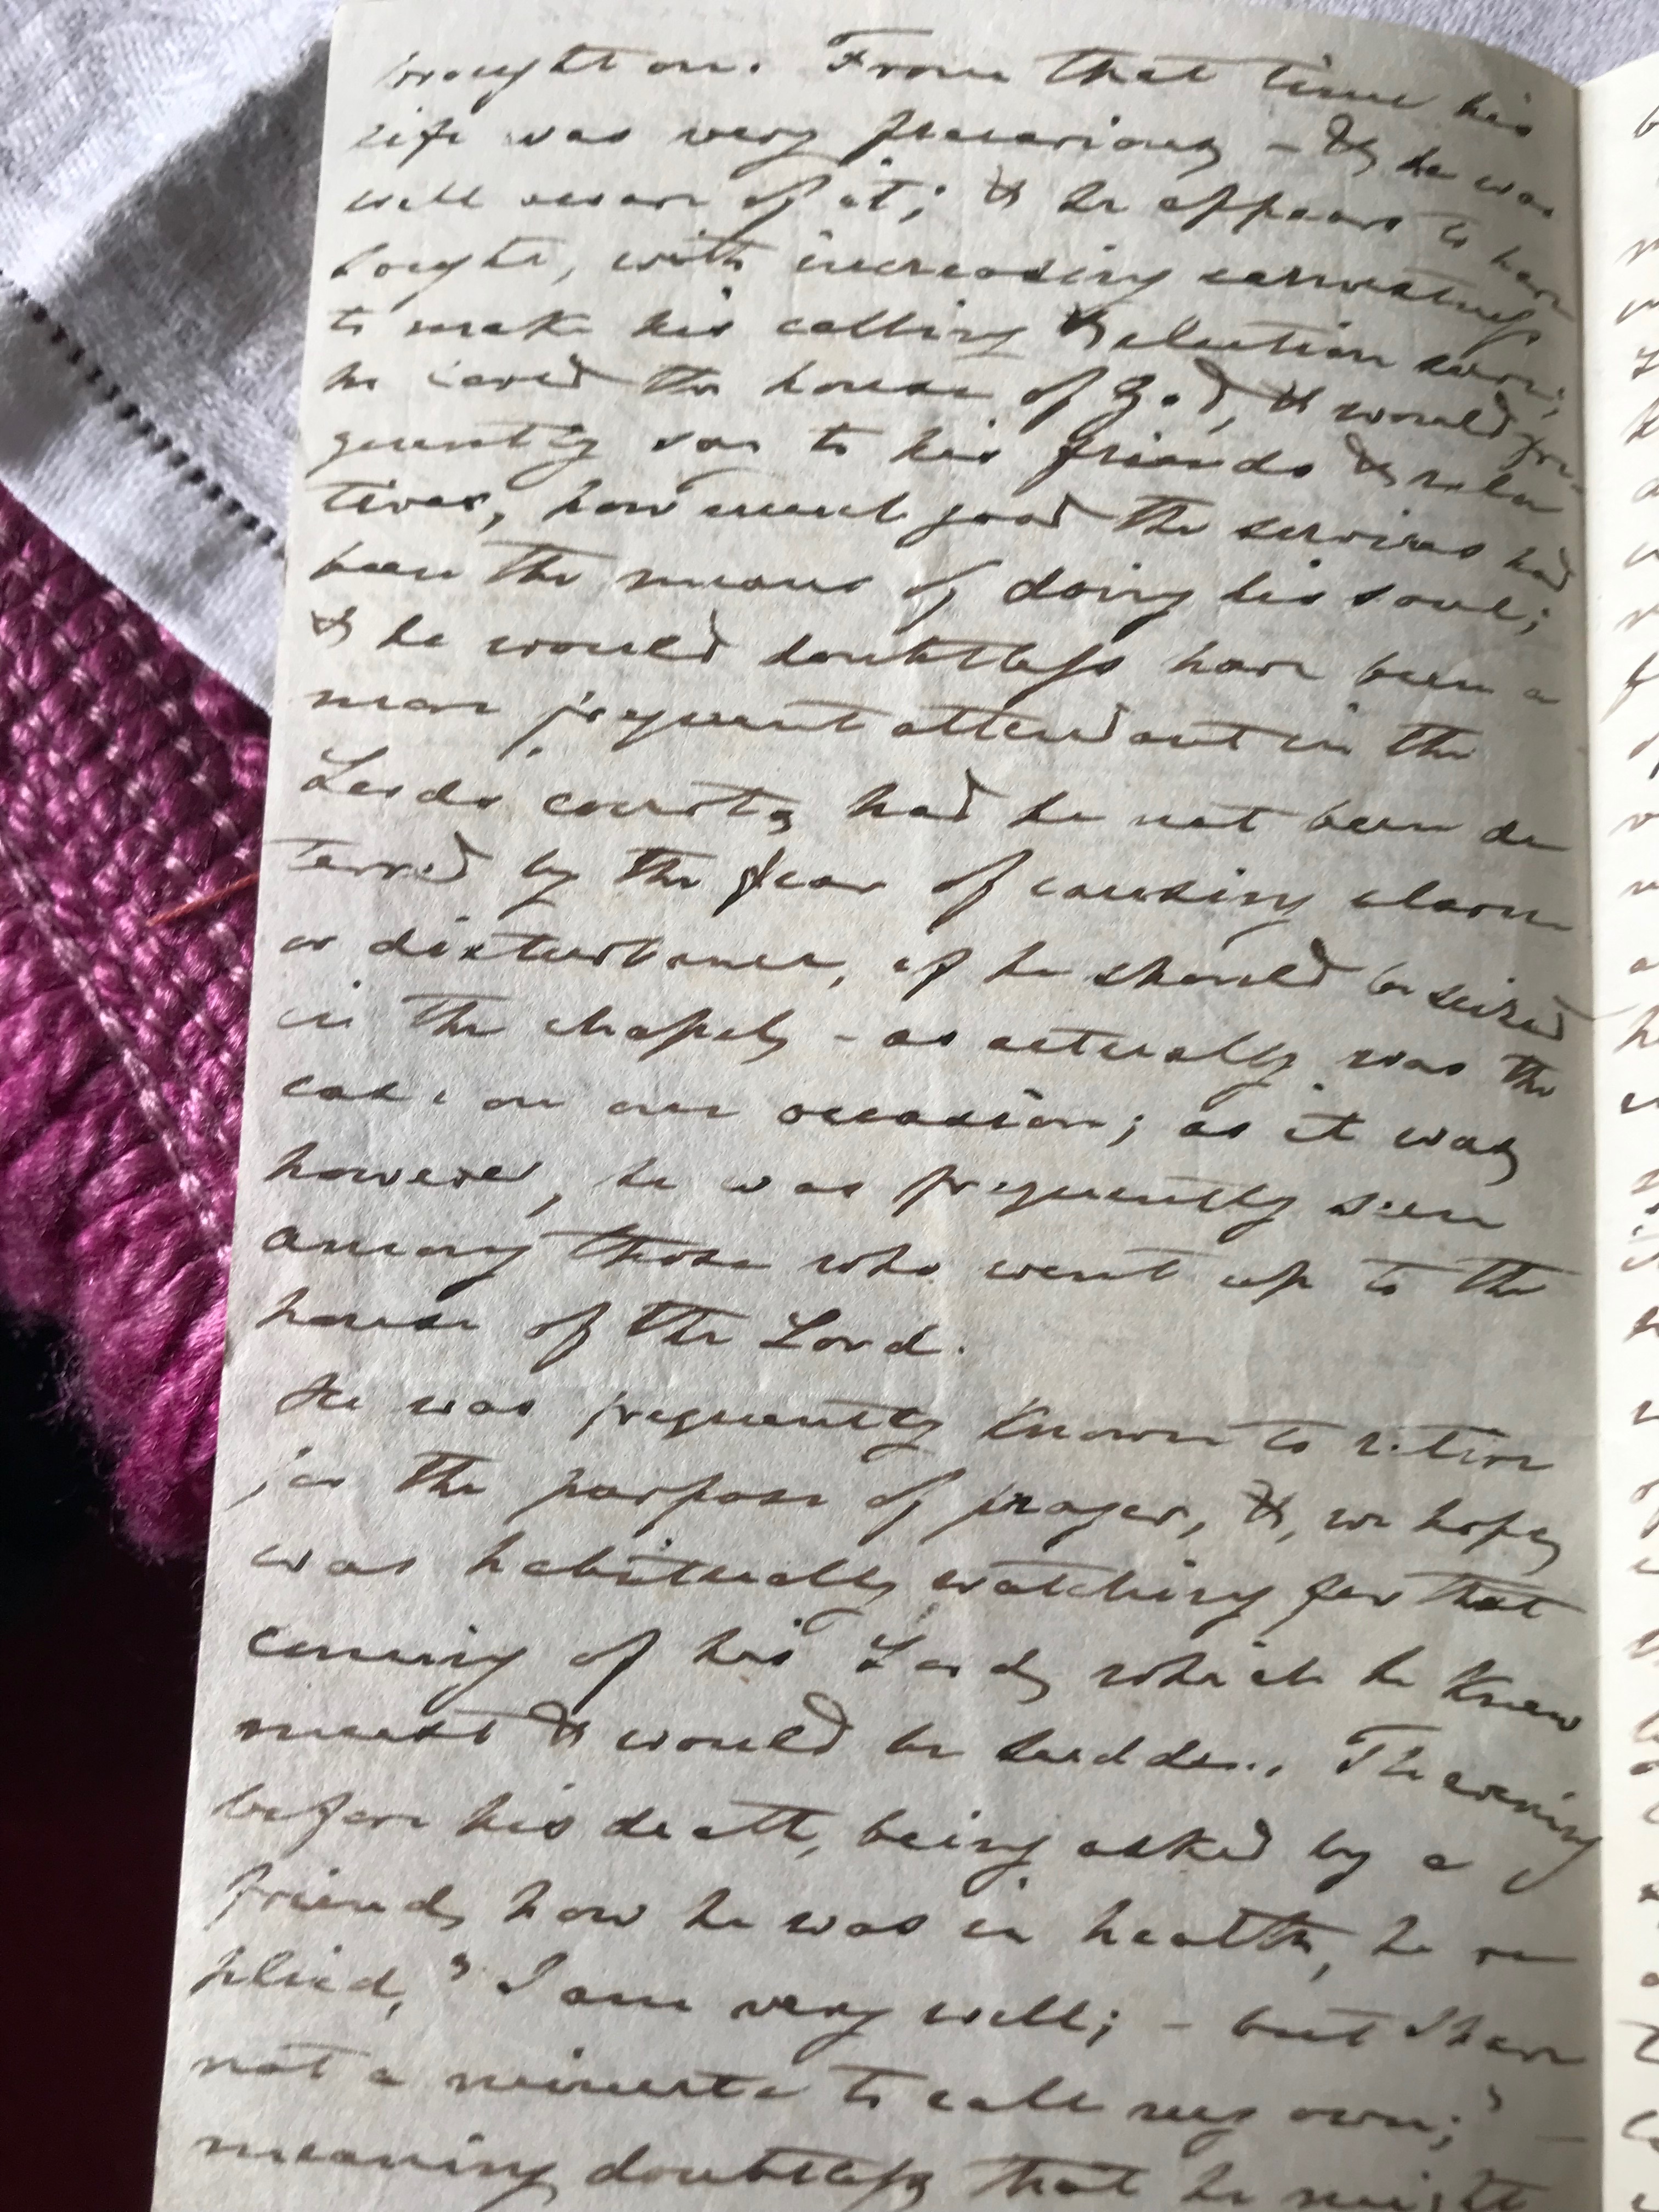 brought on. From that time his
life was very precarious, - & he was
well aware of it; & he appears to have
sought, with increasing earnestness,
to make his calling & election sure;
he loved the house of God, & would fre
quently say to his friends & rela
tives, how much good the services had
been the means of doing his soul;
& he would doubtless have been a
more frequent attendant in the
Lord's courts, had he not been de
terred by the fear of causing alarm
or disturbance, if he should be seized
in the chapel, - as actually was the
case on one occasion; as it was,
however, he was frequently seen
among those who went up to the
house of the Lord.
He was frequently known to retire
for the purpose of prayer, &, we hope,
was habitually watching for that
coming of his Lord, which he knew
must & would be sudden. The evening
before his death, being asked by a
friend, how he was in health, he re
plied, "I am very well; - but I have
not a minute to call my own;" -
meaning doubtless, that he might